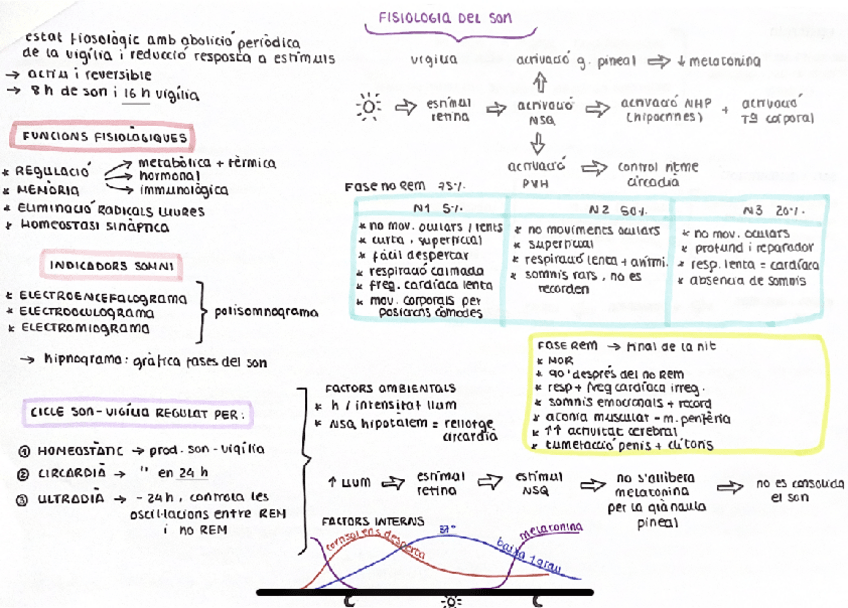 FISIOLOGIA DEL SON
estat fiosològic amb abolició periòdica
de la vigília i reducció resposta a estímuls
→ actiu i reversible
→ 8 h de son i 16 h vigília
FUNCIONS FISIOLÒGIQUES
* REGULACIÓ → metabòlica + tèrmica
→ hormonal
→ immunològica
* MEMÒRIA
* ELIMINACIÓ RADICALS LLIURES
* HOMEOSTASI SINÀPTICA
INDICADORS SOMNI
* ELECTROENCEFALOGRAMA
* ELECTROOCULOGRAMA
* ELECTROMIOGRAMA
polisomnograma
→ hipnograma: gràfica fases del son
CICLE SON-VIGÍLIA REGULAT PER:
① HOMEOSTÀTIC → prod. son-vigília
② CIRCARDIÀ → " en 24 h
③ ULTRADIÀ → -24h, controla les
oscil·lacions entre REM
i no REM
vigília
activació g. pineal ⇒ ↓ melatonina
⇒ estímul
retina
⇒ activació
NSQ
⇒ activació NHP
(hipocrines)
+ activació
Tª corporal
activació
PVH
⇒ control ritme
circadià
Fase no Rem 75%
N1 5%
* no mov. oculars / lents
* curta, superficial
* fàcil despertar
* respiració calmada
* freq. cardíaca lenta
* mov. corporals per
posicions còmodes
N2 50%
* no moviments oculars
* superficial
* respiració lenta + arítmi.
* somnis rars, no es
recorden
N3 20%
* no mov. oculars
* profund i reparador
* resp. lenta = cardíaca
* absència de somnis
FASE REM → Final de la nit
* MOR
* 90' després del no REM
* resp + freq cardíaca irreg.
* somnis emocionals + record
* atonia muscular - m. perifèria
* ↑↑ activitat cerebral
* tumefacció penis + clítoris
FACTORS AMBIENTALS
* h / intensitat llum
* NSQ hipotàlem = rellotge
circardià
↑ LLUM ⇒ estímul
retina
⇒ estímul
NSQ
⇒ no s'allibera
melatonina
per la glàndula
pineal
⇒ no es consolida
el son
FACTORS INTERNS
cortisol ens desperta
37º
baixa 1 grau
melatonina